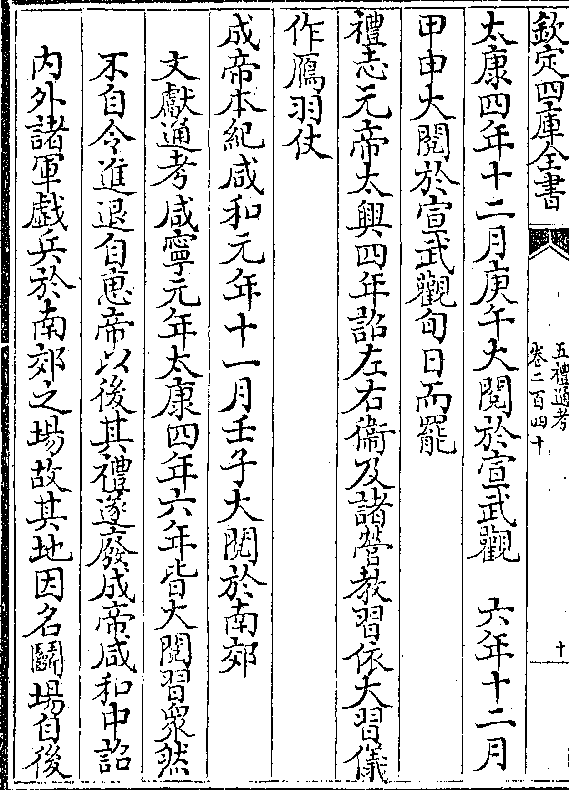 欽定四庫全書
五禮通考
卷二百四十
十
太康四年十二月庚午大閱於宣武觀　六年十二月
甲申大閱於宣武觀旬日而罷
禮志元帝太興四年詔左右衞及諸營教習依大習儀
作鴈羽仗
成帝本紀咸和元年十一月壬子大閱於南郊
文獻通考咸寧元年太康四年六年皆大閱習衆然
不自令進退自惠帝以後其禮遂廢成帝咸和中詔
内外諸軍戲兵於南郊之場故其地因名鬭場自後